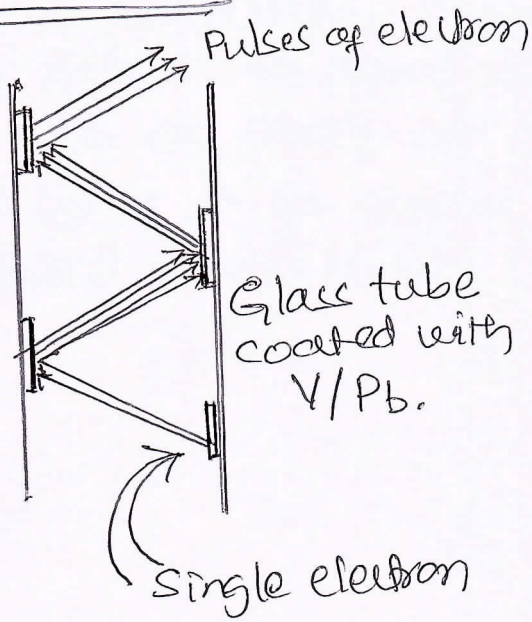 Pulses of electron
Glass tube
coated with
V/Pb.
Single electron